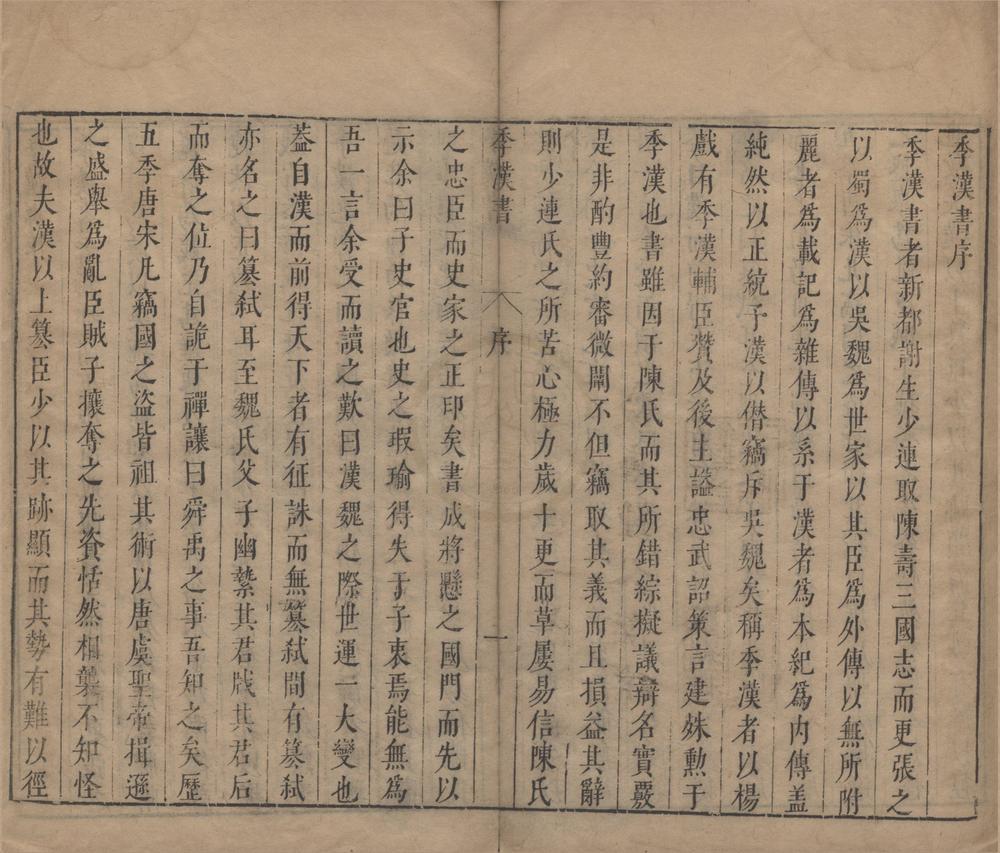 季漢書序
季漢書者新都謝生少連取陳壽三國志而更張之
以蜀爲漢以吳魏爲世家以其臣爲外傳以無所附
麗者爲載記爲雜傳以系于漢者爲本紀爲内傳盖
純然以正統予漢以僣竊斥吳魏矣稱季漢者以楊
戲有季漢輔臣贊及後主謚忠武詔策言建姝勲于
季漢也書雖因于陳氏而其所錯綜擬議辯名實覈
是非酌豐約審微闡不但竊取其義而且損益其辭
則少連氏之所苦心極力歲十更而草屢易信陳氏
季漢書 序 一
之忠臣而史家之正印矣書成將懸之國門而先以
示余曰子史官也史之瑕瑜得失于子衷焉能無爲
吾一言余受而讀之歎曰漢魏之際世運一大變也
葢自漢而前得天下者有征誅而無簒弑間有簒弑
亦名之曰簒弑耳至魏氏父子幽縶其君戕其君后
而奪之位乃自詭于禪讓曰舜禹之事吾知之矣歷
五季唐宋凡竊國之盜皆祖其術以唐虞聖帝揖遜
之盛舉爲亂臣賊子攘奪之先資恬然相襲不知怪
也故夫漢以上簒臣少以其跡顯而其勢有難以徑